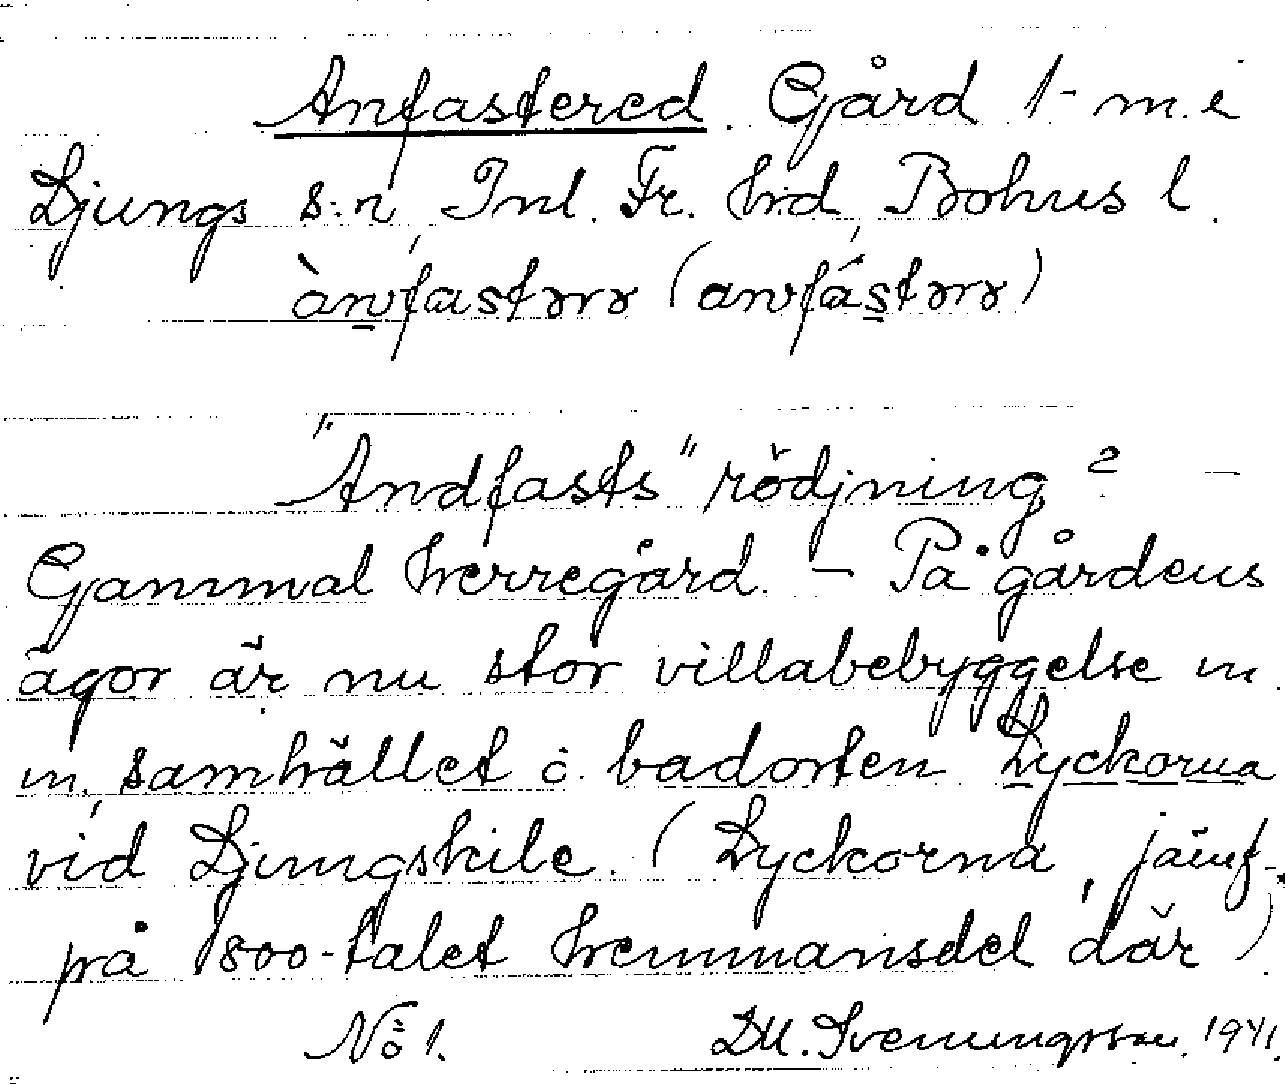 Anfastered. Gård 1- m. i
Ljungs s:n, Inl. Fr. hd, Bohus l.
ànfastərə (anfástərə)
"Andfasts" rödjning? —
Gammal herregård. — På gårdens
ägor är nu stor villabebyggelse m
m, samhället o. badorten Lyckorna
vid Ljungskile. (Lyckorna, jämf.
på 1800-talet hemmansdel där)
No 1. D.M. Svenungsson. 1941.